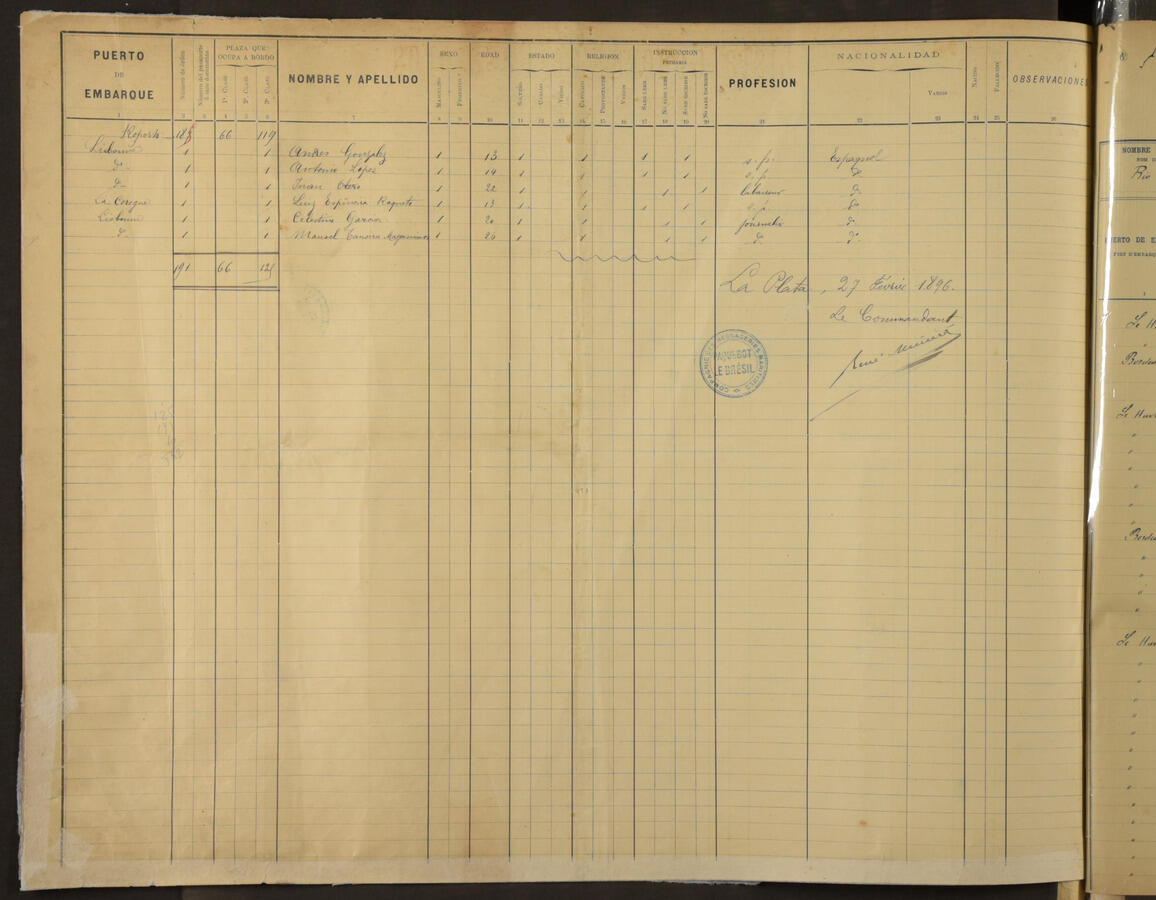 PUERTO DE EMBARQUE
Número de orden
Número del pasaporte ó sus documentos
PLAZA QUE OCUPA A BORDO
1ª CLASE 2ª CLASE 3ª CLASE
NOMBRE Y APELLIDO
SEXO
MASCULINO FEMENINO
EDAD
ESTADO
SOLTERO CASADO VIUDO
RELIGION
CATÓLICO PROTESTANTE VARIOS
INSTRUCCION
PRIMARIA
SABE LEER NO SABE LEER SABE ESCRIBIR NO SABE ESCRIBIR
PROFESION
NACIONALIDAD
VARIOS
NACIDO FALLECIDO
OBSERVACIONES
1 2 3 4 5 6 7 8 9 10 11 12 13 14 15 16 17 18 19 20 21 22 23 24 25 26
Report 66 119
Lisbonne 1 1 Andres Gonzalez 1 13 1 1 1 1 s. p. Espagnol
do 1 1 Antonio Lopez 1 14 1 1 1 1 s. p. do
do 1 1 Juan Otero 1 22 1 1 1 1 laboureur do
La Corogne 1 1 Luiz Espinera 1 13 1 1 1 1 s. p. do
Lisbonne 1 1 Celestino Garcia 1 20 1 1 1 1 journalier do
do 1 1 Manuel 1 26 1 1 1 1 do do
191 66 125
La Plata, 27 Février 1896.
Le Commandant
René
COMPAGNIE DES MESSAGERIES MARITIMES
PAQUEBOT
LE BRÉSIL
NOMBRE
Rio
Le H
Borde
Le Hav
Borde
Le Hav